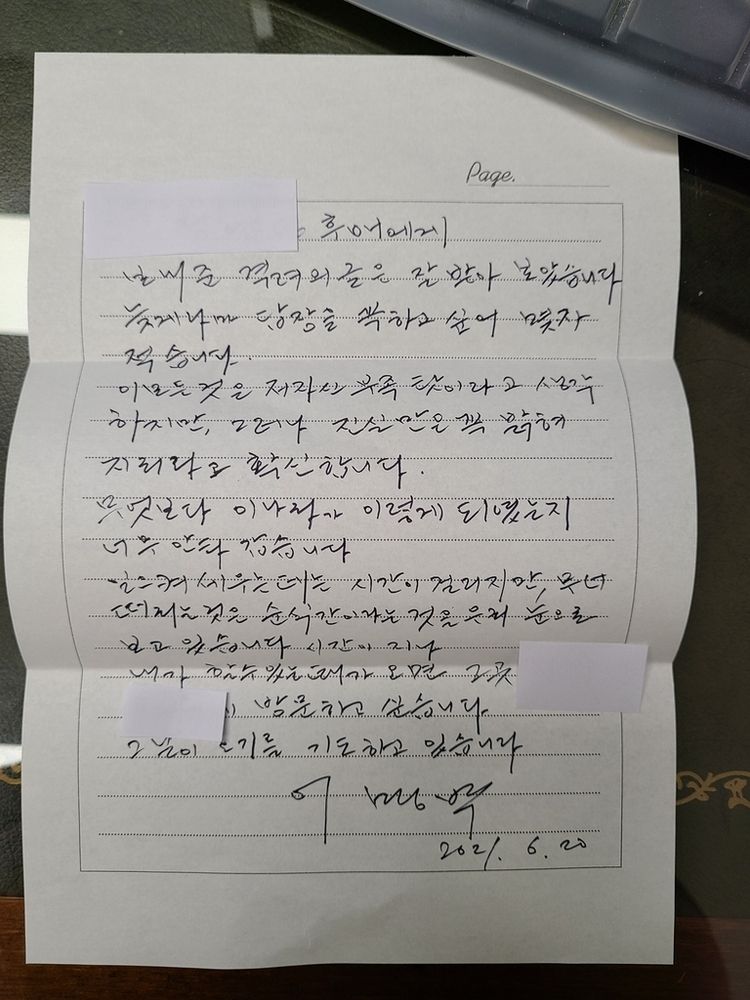 Page.
후배에게
보내준 격려의 글은 잘 받아 보았습니다
늦게나마 답장을 꼭하고 싶어 몇자
적습니다.
이모든것은 저자신 부족 탓이라고 생각
하지만, 그러나 진실만은 꼭 밝혀
지리라고 확신합니다.
무엇보다 이나라가 이렇게 되었는지
너무 안타 깝습니다
일으켜 세우는데는 시간이 걸리지만, 무너
떠지는것은 순식간이라는것을 우리 눈으로
보고 있습니다 시간이 지나
내가 할수있는때가 오면 그곳
방문하고 싶습니다
그날이 오기를 기도하고 있습니다
이 명박
2021. 6. 20